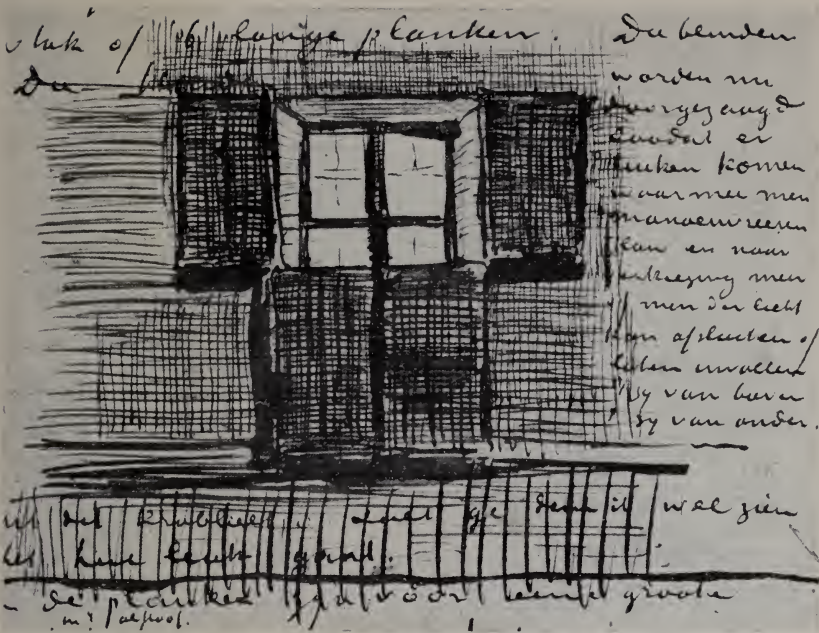 vlak of op lange planken. De blinden
De
worden nu
doorgezaagd
zoodat er
luiken komen
waarmee men
manoeuvreeren
kan en naar
verkiezing
men der licht
kan afsluiten of
laten invallen
'tzij van boven
'tzij van onder.
uit dit krabbeltje zult ge denk ik wel zien
het heel leuk gaat.
de planken zijn voor eene groote